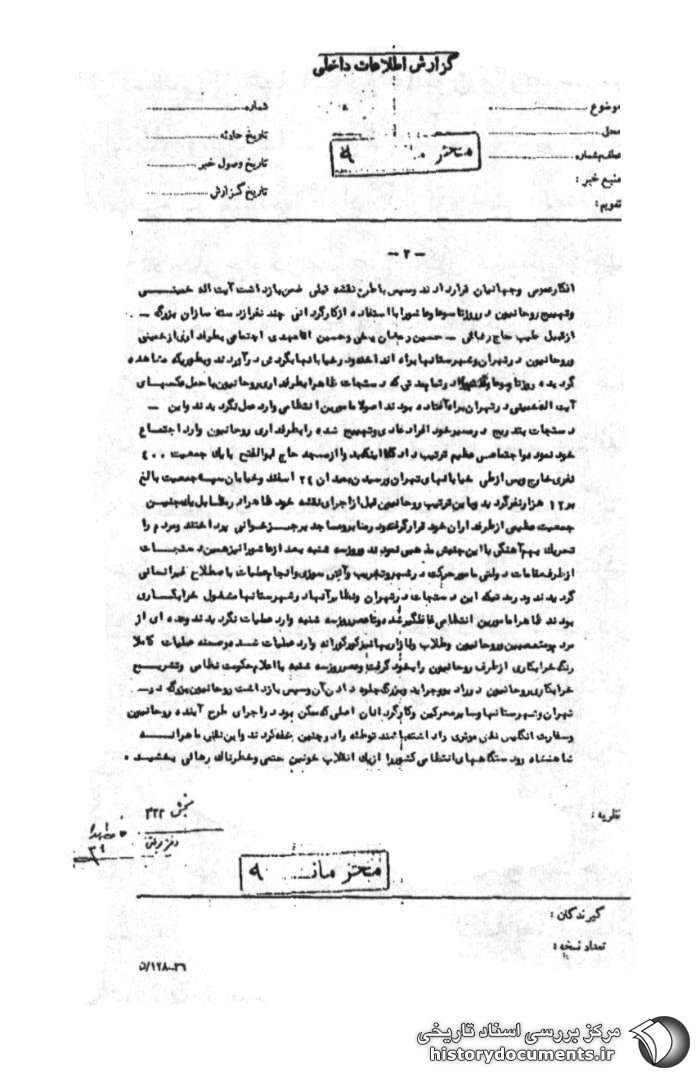 گزارش اطلاعات داخلی
موضوع
محل
عطف بشماره
منبع خبر :
تقویم :
شماره
تاریخ حادثه
تاریخ وصول خبر
تاریخ گزارش
— ۲ —
وجهانیان قرار دادند وسپس با طرح نقشه قبلی ضمن بازداشت آیت اله خمینی
وتهییج روحانیون در روز تاسوعا وعاشورا با استفاده از کارگردانی چند نفر از دسته سازان بزرگ —
از قبیل طیب حاج رضائی — حسین رمضان یخی وحسین اجتماعی بطرفداری از خمینی
وروحانیون در تهران وشهرستانها براه انداختند ودر خیابانها بگردش درآوردند وبطوریکه مشاهده
گردیده روز تاسوعا دستجات ظاهرا بطرفداری روحانیون با حمل عکسهای
آیت اله خمینی در تهران براه افتاده بودند اصولا مامورین انتظامی وارد عمل نگردیدند واین —
دستجات بتدریج در مسیر خود افراد عادی وتهییج شده را بطرفداری روحانیون وارد اجتماع
خود نمودند واجتماعی عظیم ترتیب دادند از مسجد حاج ابوالفتح با یک جمعیت ۴۰۰
نفری خارج وپس از طی خیابانهای تهران ورسیدن بمیدان ۲۴ اسفند وخیابان سپه جمعیت بالغ
بر ۱۲ هزار نفر گردید وباین ترتیب روحانیون قبل از اجرای نقشه خود ظاهرا در مقابل یک چنین
جمعیت عظیمی از طرفداران خود قرار گرفتند ودر منابر ومساجد برجز خوانی پرداختند ومردم را
تحریک بهم آهنگی با این جنبش مذهبی نمودند وروز سه شنبه بعد از عاشورا نیز همین دستجات
از طرف مقامات دولتی مامور حرکت در شهر وتخریب وآتش سوزی وانجام عملیات باصطلاح خیر انسانی
گردیدند ودر مدتیکه این دستجات در تهران ونظایر آنها در شهرستانها مشغول خرابکاری
بودند ظاهرا مامورین انتظامی غافلگیر شده وتا عصر روز سه شنبه وارد عملیات نگردیدند وعده ای از
مردم متعصبین وروحانیون وطلاب وبازاریها نیز کورکورانه وارد عملیات شدند ودر نتیجه عملیات کاملا
رنگ خرابکاری از طرف روحانیون را بخود گرفت وعصر روز سه شنبه با اعلام حکومت نظامی وتشریح
خرابکاری روحانیون در رادیو وجراید وبزرگ جلوه دادن آن وسپس بازداشت روحانیون بزرگ در —
تهران وشهرستانها وسایر محرکین وکارگردانان اصلی که ممکن بود در اجرای طرح آینده روحانیون
وسفارت انگلیس نقش موثری را داشته باشند توطئه را در نطفه خفه کردند واین نقش ماهرانه
شاهنشاه ودستگاههای انتظامی کشور را از یک انقلاب خونین حتمی وخطرناک رهائی بخشید .
نظریه :
بخش ۳۲۲
گیرندگان :
تعداد نسخه :
۳۶-۱۲۸/ن
مرکز بررسی اسناد تاریخی
historydocuments.ir